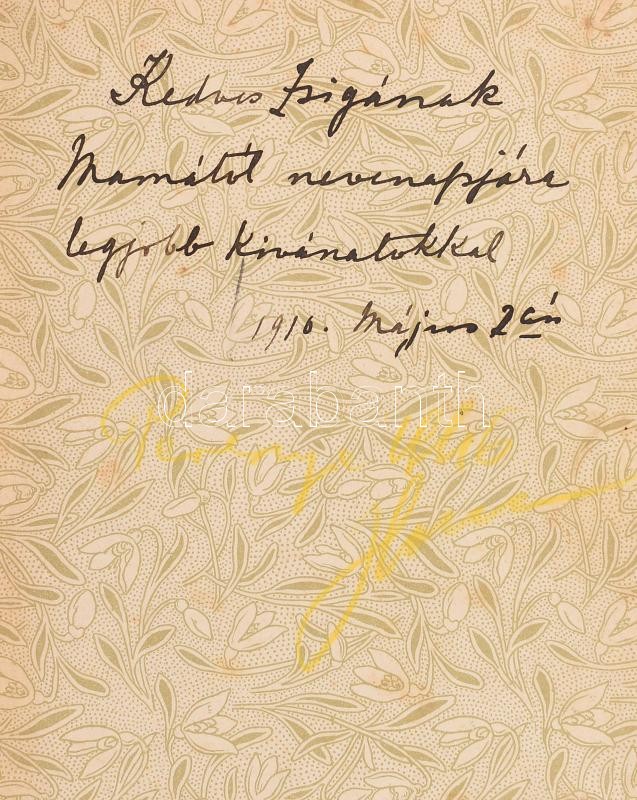 Kedves Zsigának
Mamától nevenapjára
legjobb kivánatokkal
1916. Május 2án
darabanth